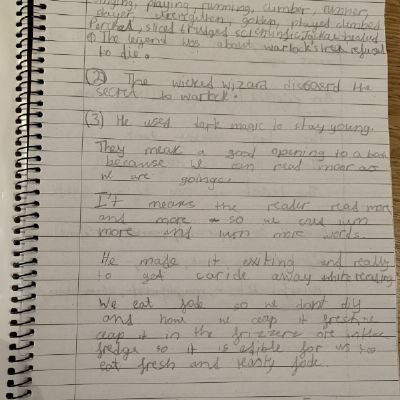 playing, running, climber, runner,
player, strengthen, golden, played climbed
Parched, sliced trudged scientific Jacket healed
(1) The legend was about warlock's refusal
to die.
(2) The wicked wizard the
secret to
(3) He used dark magic to stay young.
They meak a good opening to a book
because we can read moor as
we are goinge.
I't means the reader read more
and more so we can lurn
more and lurn more words.
He made it exiting and really
to get caride away white reading
We eat fode so we dont diy
and how we ceap it fresh we
ceap it in the frizzere ore
fredge so it is edible for us to
eat fresh and teasty fode.